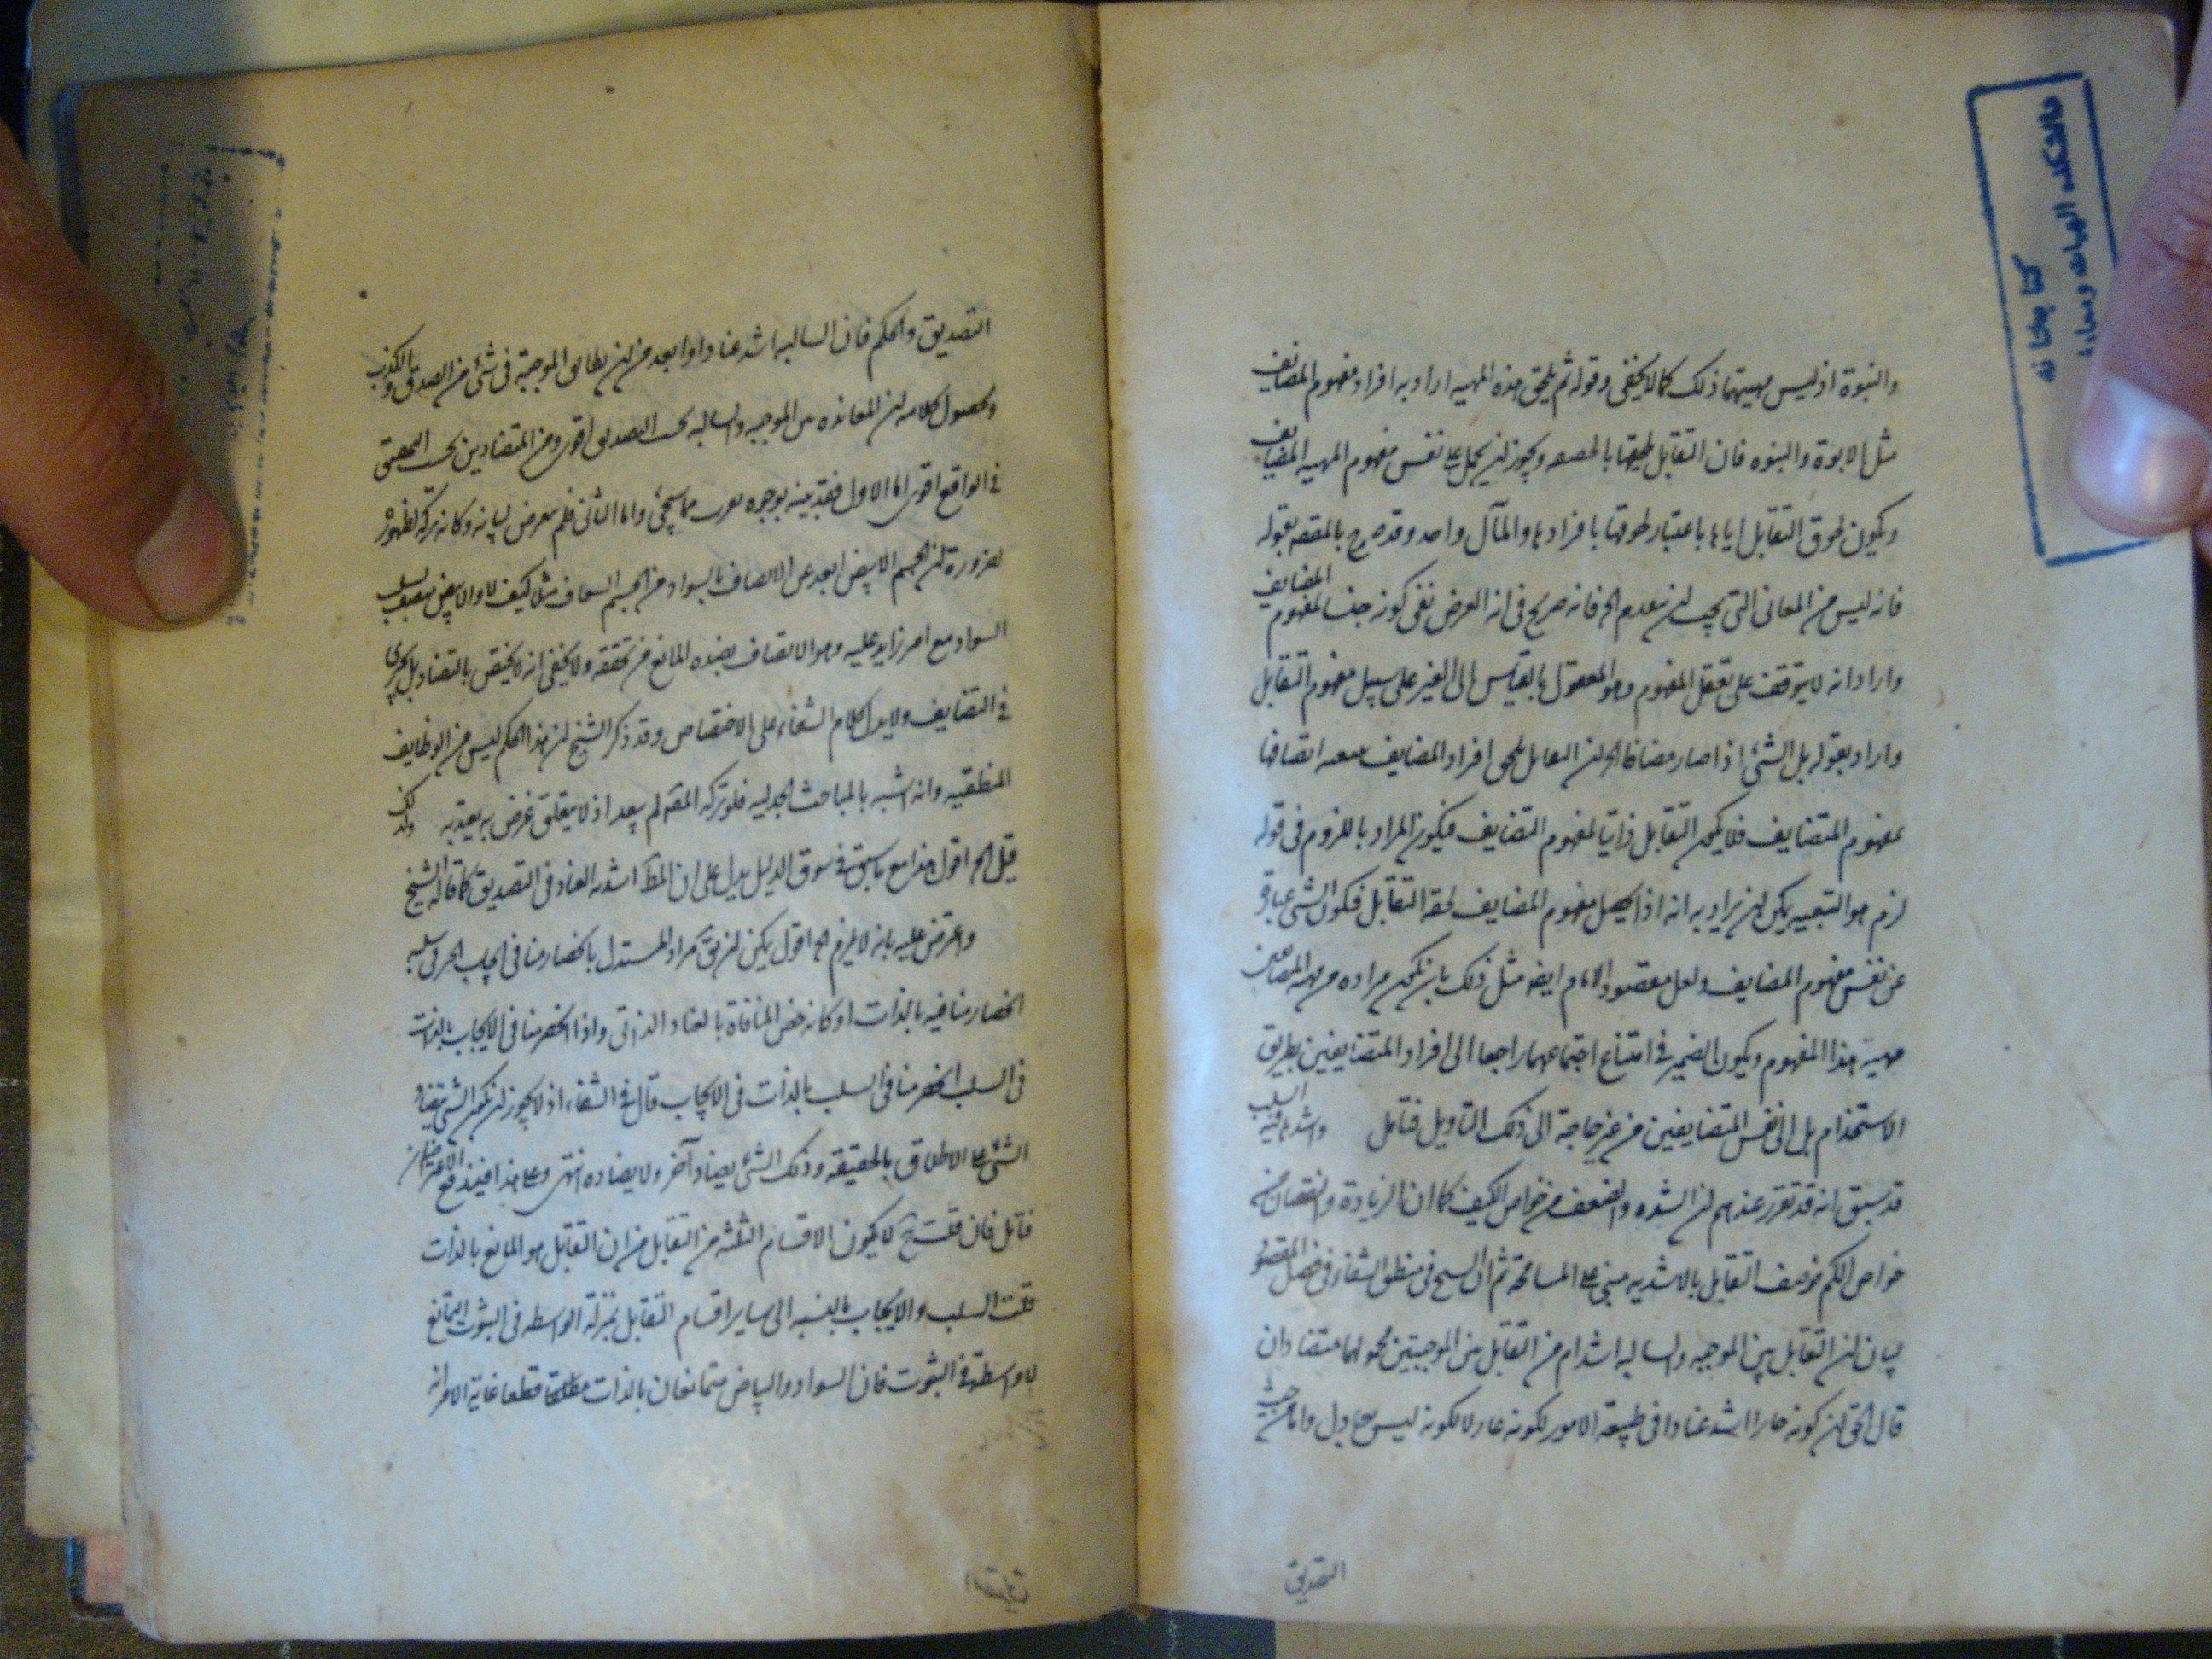 والنبوة اذ ليس مهيتهما ذلك كما لا يخفى وقوله ثم يلحق هذه المهيه اراد به افراد مفهوم المضايف
مثل الابوة والبنوه فان التقابل يلحقها بالحقيقه ويجوز ان يحمل على نفس مفهوم المهيه المضايف
ويكون لحوق التقابل اياها باعتبار لحوقها بافرادها والمآل واحد وقد صرح بالمقصه بقوله
فانه ليس من المعانى التى يجب ان ينعدم الخ فانه صريح فى انه الغرض نفى كونه جنسا لمفهوم المضايف
واراد انه لا يتوقف على تعقل المفهوم وهو المعقول بالقياس الى الغير على سبيل مفهوم التقابل
واراد بقوله بل الشئ اذا صار مضافا الخ ان التعابل يلحق افراد المضايف اتصافها
بمفهوم المتضايف فلا يكون التقابل ذاتيا لمفهوم التضايف فيكون المراد باللزوم فى قوله
لزم هو التبعيه يمكن ان يراد به انه اذا يحصل مفهوم المضايف لحقه التقابل فيكون الشئ عبارة
عن نفس مفهوم المضايف ولعل مقصود الامام ايضا مثل ذلك بان يكون مراده من مهيه المضايفين
مهية هذا المفهوم ويكون الضمير فى امتناع اجتماعهما راجعا الى افراد المتضايفين بطريق
الاستخدام بل الى نفس المتضايفين من غير حاجة الى ذلك التاويل فتامل واشدها فيه السلب
قد سبق انه قد تقرر عندهم ان الشده والضعف من خواص الكيف كما ان الزيادة والنقصان من
خواص الكم فوصف التقابل بالاشديه مبنى على المسامحة ثم ان الشيخ فى منطق الشفاء فى فصل المعقود
لبيان ان التقابل بين الموجبه والسالبه اشد ام من التقابل بين الموجبتين محمولهما متضادان
قال الحق ان كونه جارا اشد عنادا فى طبيعة الامور لكونه عادلا لكونه ليس بعادل واما من حيث
التصديق
التصديق والحكم فان السالبه اشد عنادا وابعد من ان يطابق الموجبة فى شئ من الصدق والكذب
ومحصول كلامه ان المعانده بين الموجبه والسالبه بحسب التصديق اقوى ومن المتضادين بحسب التحقق
فى الواقع اقوى اما الاول فقد بينه بوجوه تعرب مما سيجئ واما الثانى فلم يتعرض لبيانه وكانه تركه لظهوره
لضرورة ان الجسم الابيض ابعد عن الاتصاف بالسواد من الجسم الشفاف مثلا كيف لا والابيض سلب
السواد مع امر زايد عليه وهو الاتصاف بضده المانع من تحققه ولا يخفى انه لا يختص بالتضاد بل يجرى
فى التضايف ولا يدل كلام الشفاء على الاختصاص وقد ذكر الشيخ ان هذا الحكم ليس من الوظايف
المنطقيه وانه اشبه بالمباحث الجدليه فلو تركه المقه لم يبعد اذ لا يتعلق غرض به يعتد به ولذلك
قيل الخ اقول هذا مع ما سبق فى سوق الدليل يدل على ان المط اشديه العناد فى التصديق كما قاله الشيخ
واعترض عليه بانه لا يلزم الخ اقول يمكن ان يق مراد المستدل بانحصار منافى ايجاب الخير فى سلبه
انحصار منافيه بالذات او كانه خص المنافاة بالعناد الذاتى واذا انحصر منافى الايجاب بالذات
فى السلب انحصر منافى السلب بالذات فى الايجاب قال فى الشفاء اذ لا يجوز ان يكون الشئ يضاد
الشئ على الاطلاق بالحقيقة وذلك الشئ يضاد آخر ولا يضاده انتهى وعلى هذا فيندفع الاعتراضان
فتامل فان قلت ح لا يكون الاقسام الثلثه من التقابل من ان التقابل هو المانع بالذات
قلت السلب والايجاب بالنسبه الى ساير اقسام التقابل بمنزلة الواسطه فى الثبوت
لا واسطة فى الثبوت فان السواد والبياض متمانعان بالذات مطلقا قطعا غاية الامر انه
كتابخانه
دانشکده الهیات و معارف